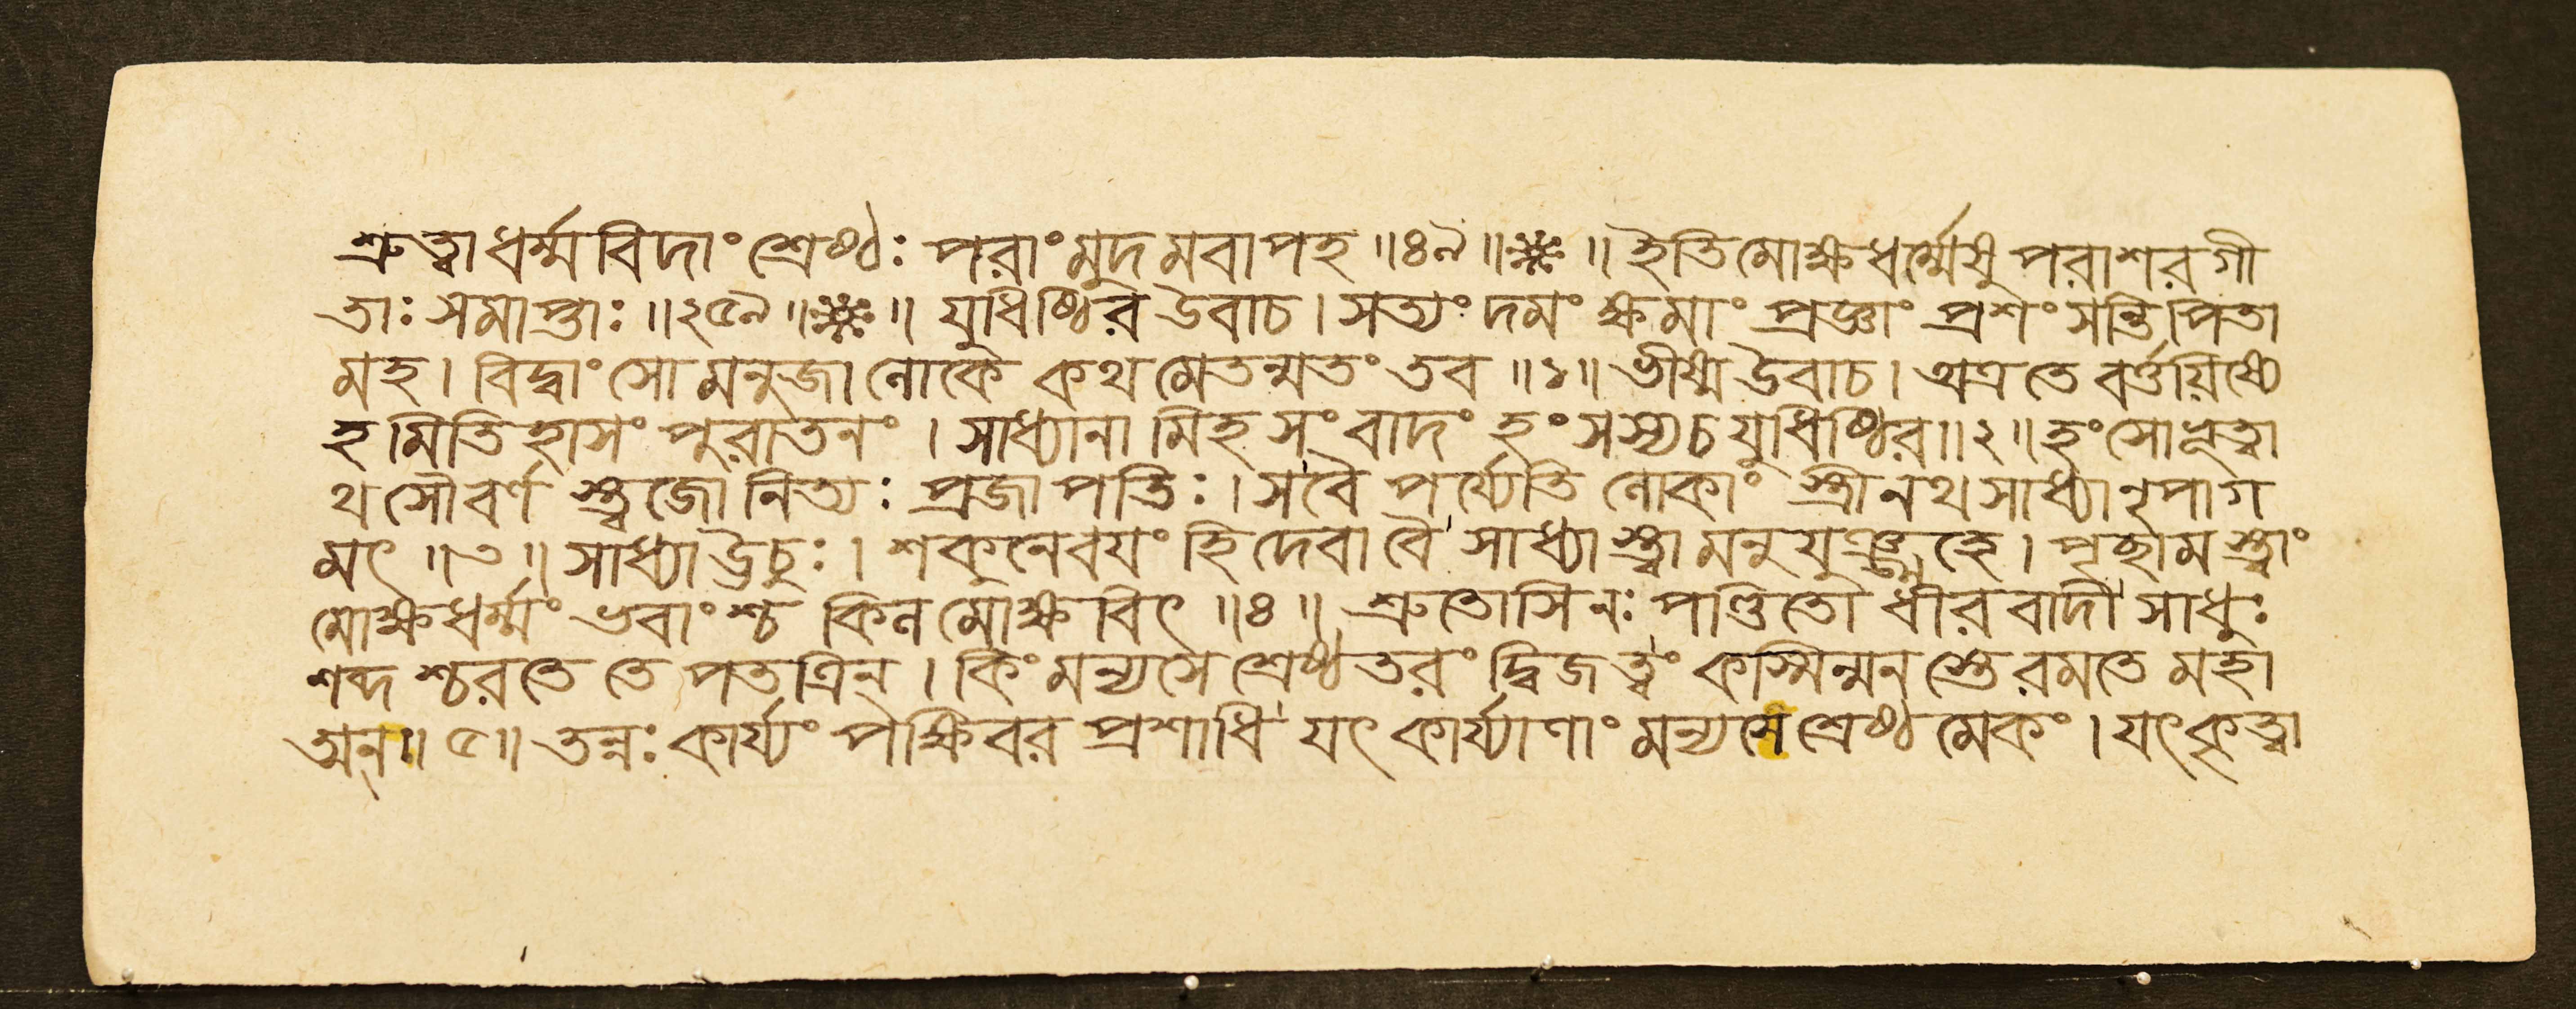 শ্রুত্বা ধর্ম্মবিদাং শ্রেষ্ঠঃ পরাং মুদমবাপহ ॥ ৪৯ ॥ ❈ ॥ ইতি মোক্ষধর্ম্মেষু পরাশরগী
তাঃ সমাপ্তাঃ ॥ ২৫৯ ॥ ❈ ॥ যুধিষ্ঠির উবাচ । সত্যং দমং ক্ষমাং প্রজ্ঞাং প্রশংসন্তি পিতা
মহ । বিদ্বাংসো মনুজা লোকে কথমেতন্মতং তব ॥ ১ ॥ ভীষ্ম উবাচ । অত্র তে বর্ত্তয়িষ্যে
হমিতিহাসং পুরাতনং । সাধ্যানামিহ সংবাদং হংসস্য চ যুধিষ্ঠির ॥ ২ ॥ হংসো ভূত্বা
থ সৌবর্ণস্ত্বজো নিত্যঃ প্রজাপতিঃ । স বৈ পর্য্যেতি লোকাংস্ত্রীনথ সাধ্যানুপাগ
মৎ ॥ ৩ ॥ সাধ্যা ঊচুঃ । শকুনে বয়ং হি দেবা বৈ সাধ্যাস্ত্বামনুযুঞ্জ্মহে । পৃচ্ছামস্ত্বাং
মোক্ষধর্ম্মং ভবাংশ্চ কিল মোক্ষবিৎ ॥ ৪ ॥ শ্রুতোসি নঃ পণ্ডিতো ধীরবাদী সাধুঃ
শব্দশ্চরতে তে পতত্রিন্ । কিং মন্যসে শ্রেষ্ঠতরং দ্বিজ ত্বং কস্মিন্মনস্তে রমতে মহা
ত্মন্ ॥ ৫ ॥ তন্নঃ কার্য্যং পক্ষিবর প্রশাধি যৎ কার্য্যাণাং মন্যসে শ্রেষ্ঠমেকং । যৎ কৃত্বা